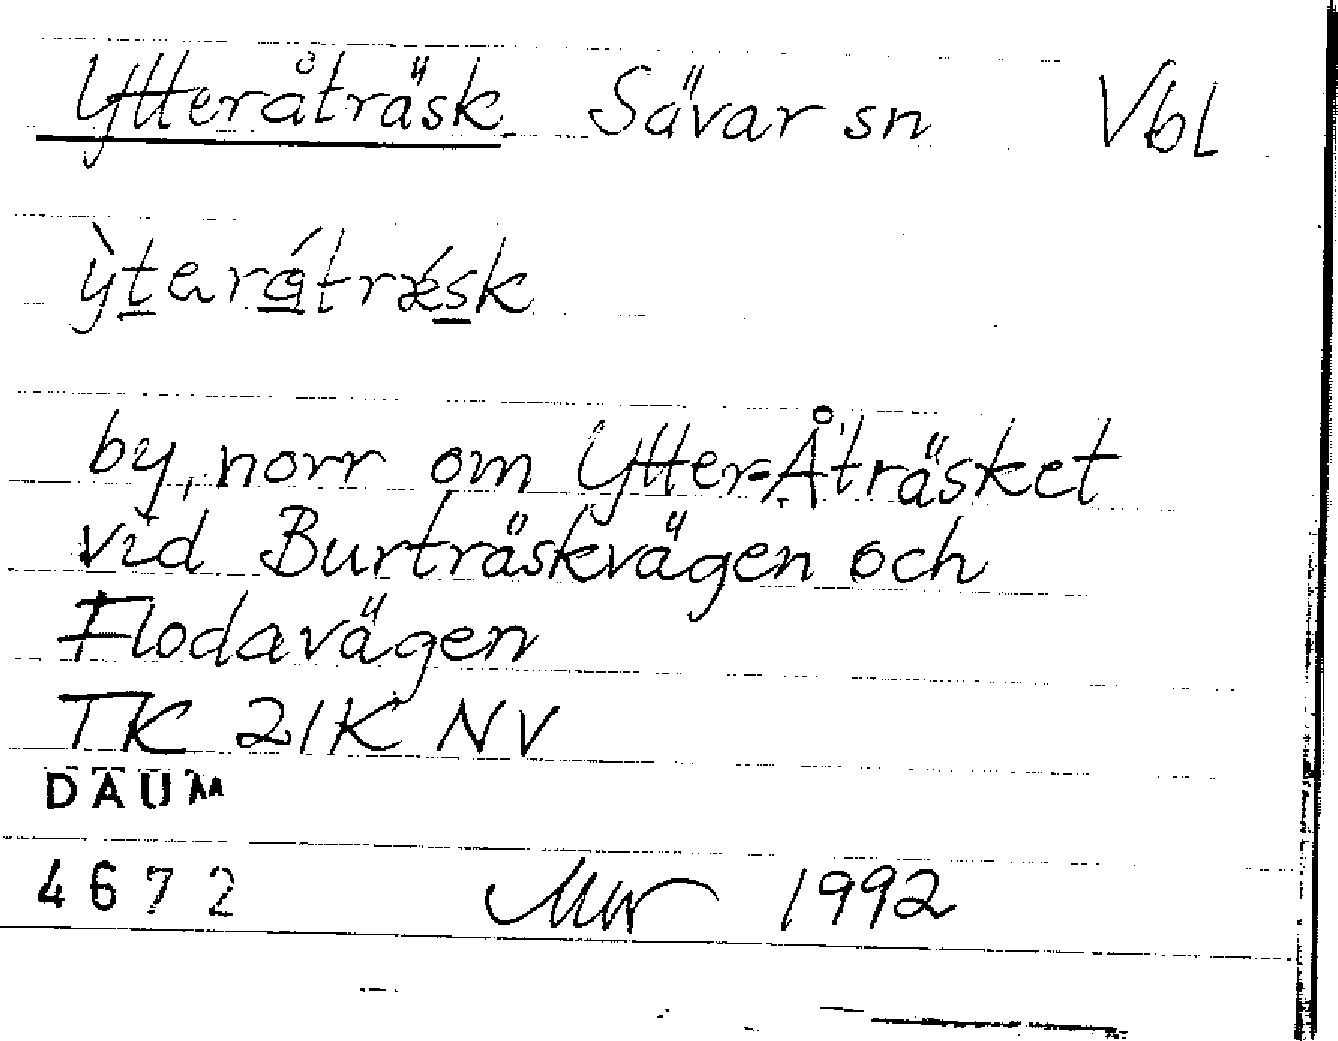 Ytteråträsk Sävar sn Vbl
ỳterátrǽsk
by, norr om Ytter-Åträsket
vid Burträskvägen och
Flodavägen
TK 21K NV
DAUM
4672 1992